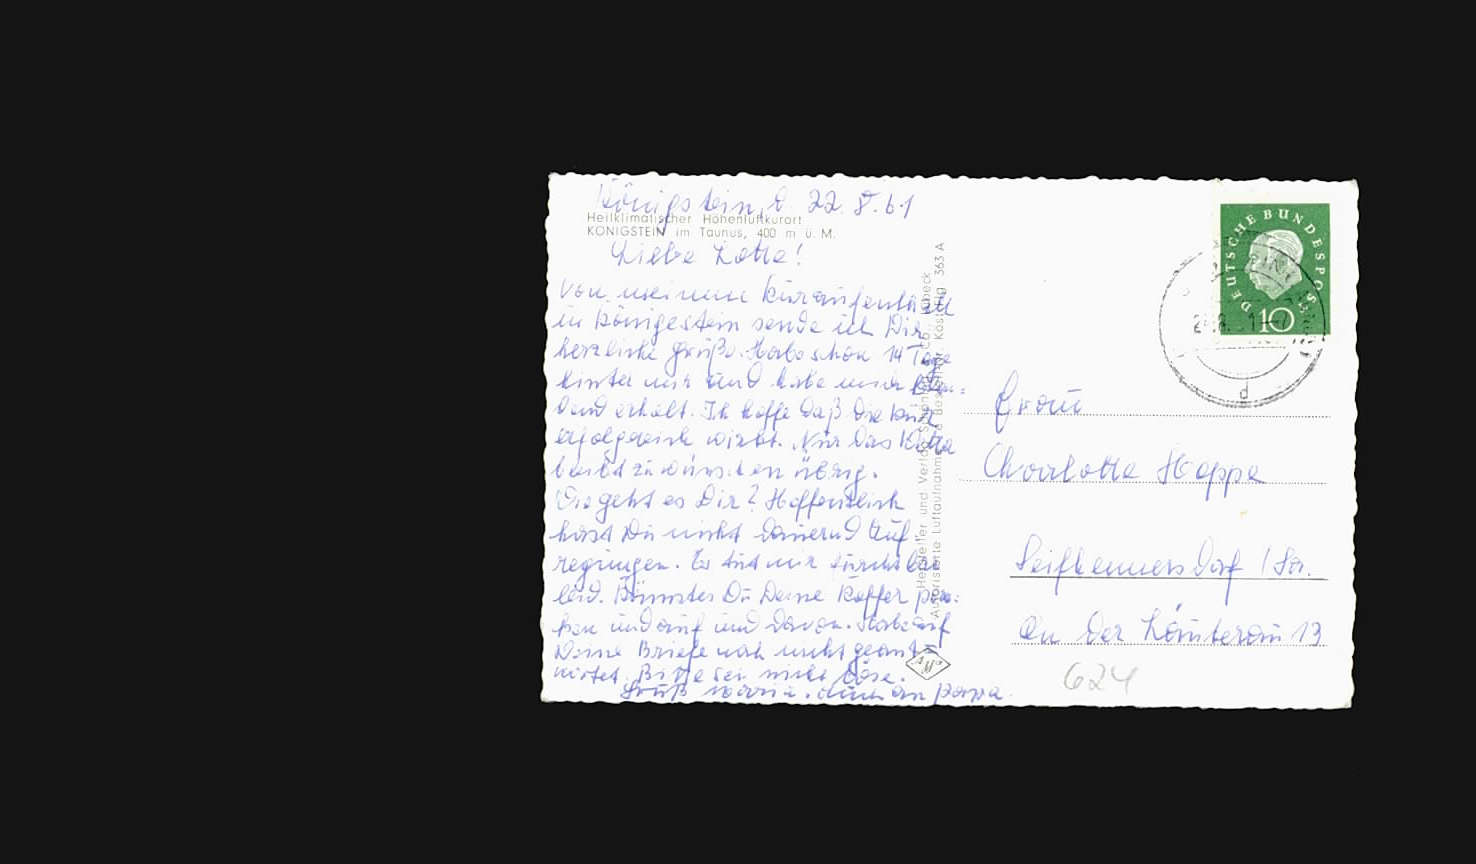 Königstein, d 22. 8. 61
Heilklimatischer Höhenluftkurort
KÖNIGSTEIN im Taunus, 400 m ü. M.
Liebe Lotte!
Von meinem Kuraufenthalt
in Königstein sende ich Dir
herzliche Grüße. Habe schon 14 Tage
hinter mir und habe mich
erholt. Ich hoffe daß die Kur
erfolgreich wirkt. Nur das
zu wünschen übrig.
Wie geht es Dir? Hoffentlich
hast Du nicht dauernd Auf
regungen. Es tut mir furchtbar
leid. Könntest Du Deine Koffer pac-
ken und auf und davon. Habe auf
Deine Briefe noch nicht geant-
wortet. Bitte sei nicht böse.
Gruß Maria. auch an Pappa.
Hersteller und Verlag Schöning & Co., Lübeck
Autorisierte Luftaufnahme
363 A
DEUTSCHE BUNDESPOST
10
d
Frau
Charlotte Hoppe
Seifhennersdorf / Sa.
An der Läuterau 13
624